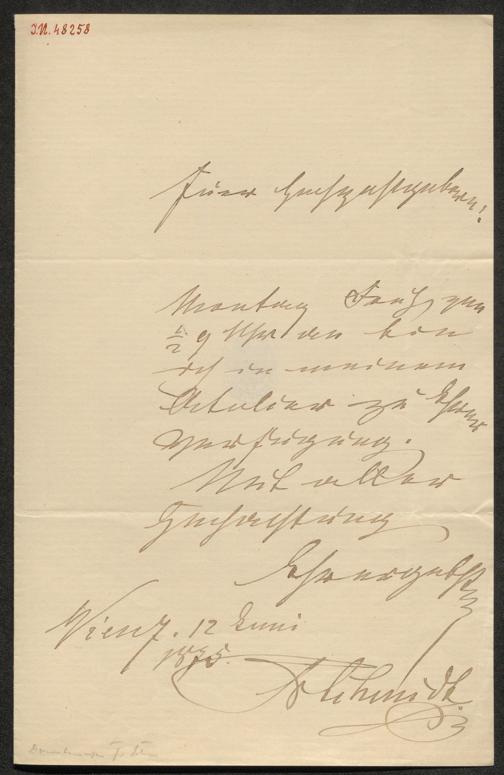 I.N. 48258
Euer Hochwohlgeboren!
Montag Früh von
1/2 9 Uhr an bin
ich in meinem
Attelier zu Ihrer
Verfügung.
Mit aller
Hochachtung
Ihr ergebst
Wien 7. 12 Juni
Schmidt